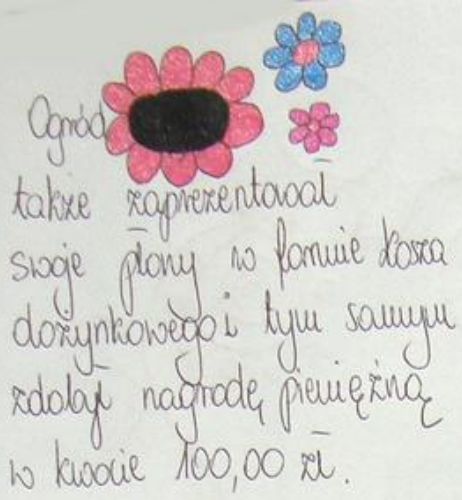 Ogród
także zaprezentował
swoje plony w formie kosza
dożynkowego i tym samym
zdobył nagrodę pieniężną
w kwocie 100,00 zł.